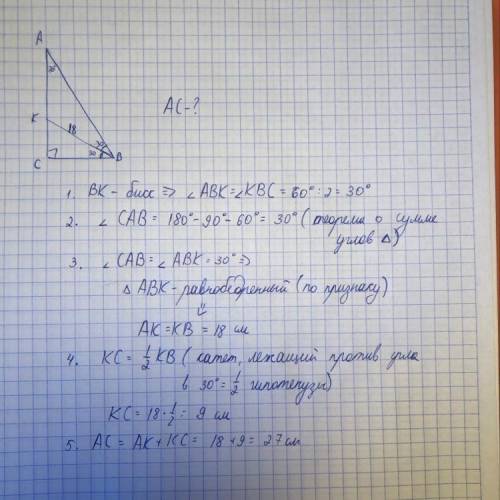 A
30
K
18
30
C
30
B
AC-?
1. BK - бисс => ∠ABK=∠KBC = 60°:2=30°
2. ∠ CAB = 180°-90°-60°= 30° (теорема о сумме
углов Δ)
3. ∠CAB=∠ABK=30°=>
Δ ABK-равнобедренный (по признаку)
⇓
AK=KB = 18 см
4. KC= 1/2 KB ( катет, лежащий против угла
в 30°= 1/2 гипотенузы)
KC = 18·1/2= 9 см
5. AC = AK+KC= 18+9= 27см